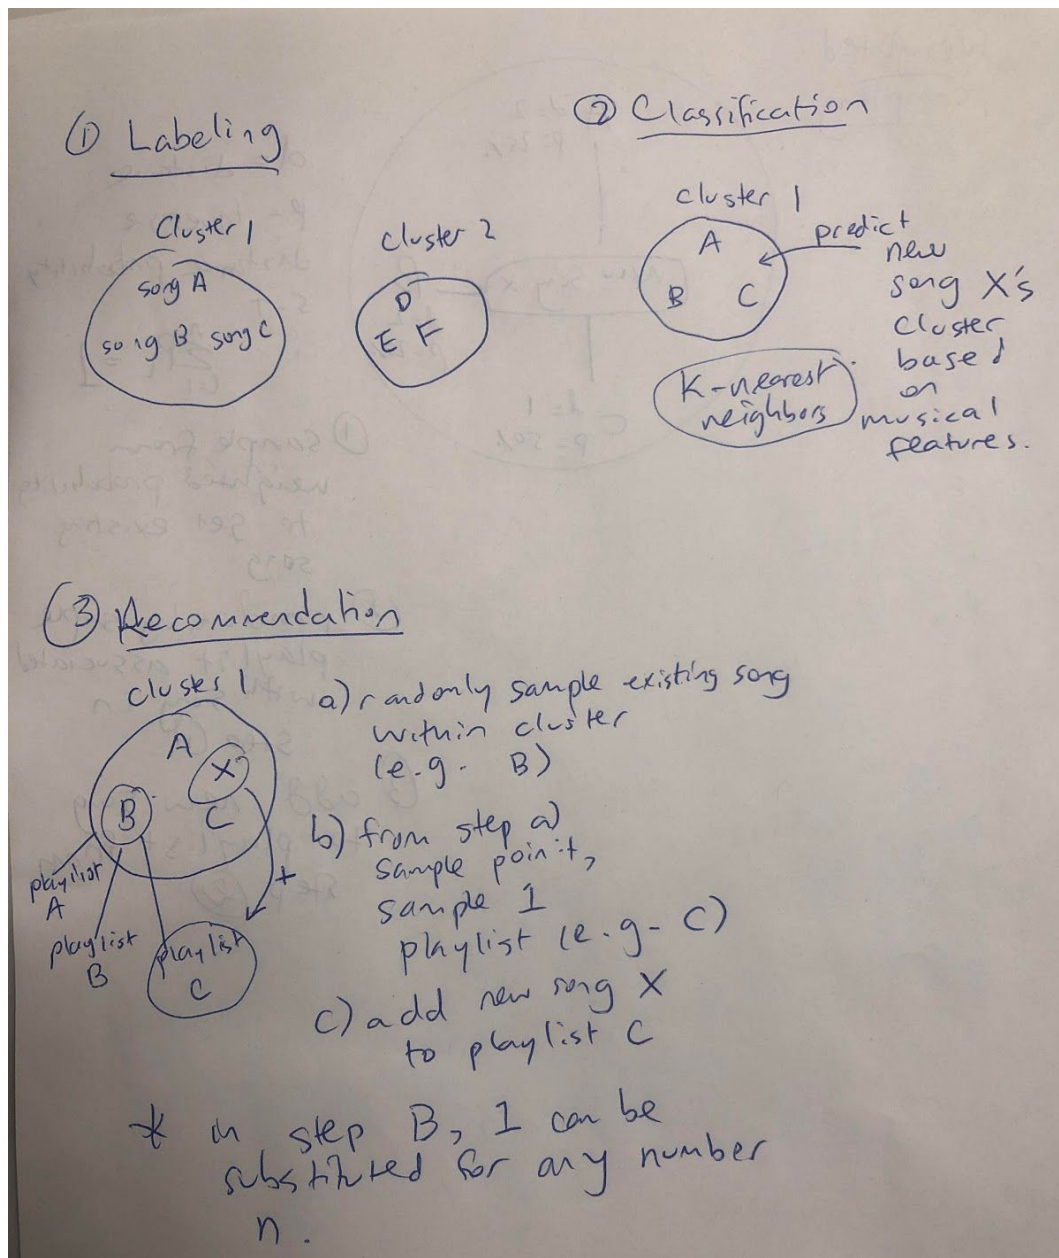 ① Labeling
Cluster 1
song A
song B song C
cluster 2
D
E F
② Classification
cluster 1
A
B C
predict
new
song X's
cluster
based
on
musical
features.
K-nearest
neighbors
③ Recommendation
cluster 1
A
X
B
C
+
playlist
A
playlist
B
playlist
C
a) randomly sample existing song
within cluster
(e.g. B)
b) from step a)
sample point,
sample 1
playlist (e.g. C)
c) add new song X
to playlist C
* in step B, 1 can be
substituted for any number
n.